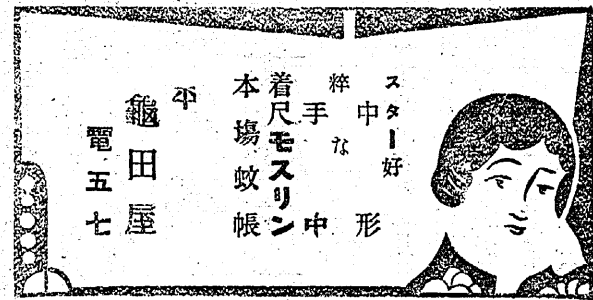 スター好
中形
粋な
手中
着尺モスリン
本場蚊帳
卆
龜田屋
電五七